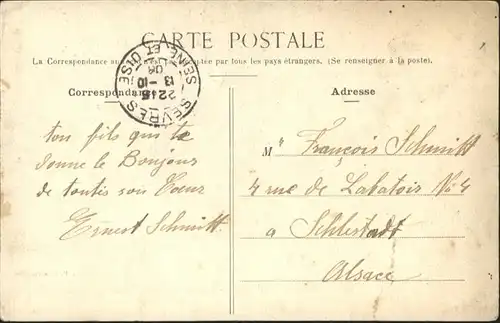 CARTE POSTALE
La Correspondance au tée par tous les pays étrangers. (Se renseigner à la poste).
SÈVRES
SEINE-ET-OISE
22 15
13 -10
06
Correspondance
Adresse
ton fils qui te
donne le Bonjour
de toutis son Cœur
Ernest Schmitt
Mr François Schmitt
4 rue de Labatois No 4
a Schlestadt
Alsace